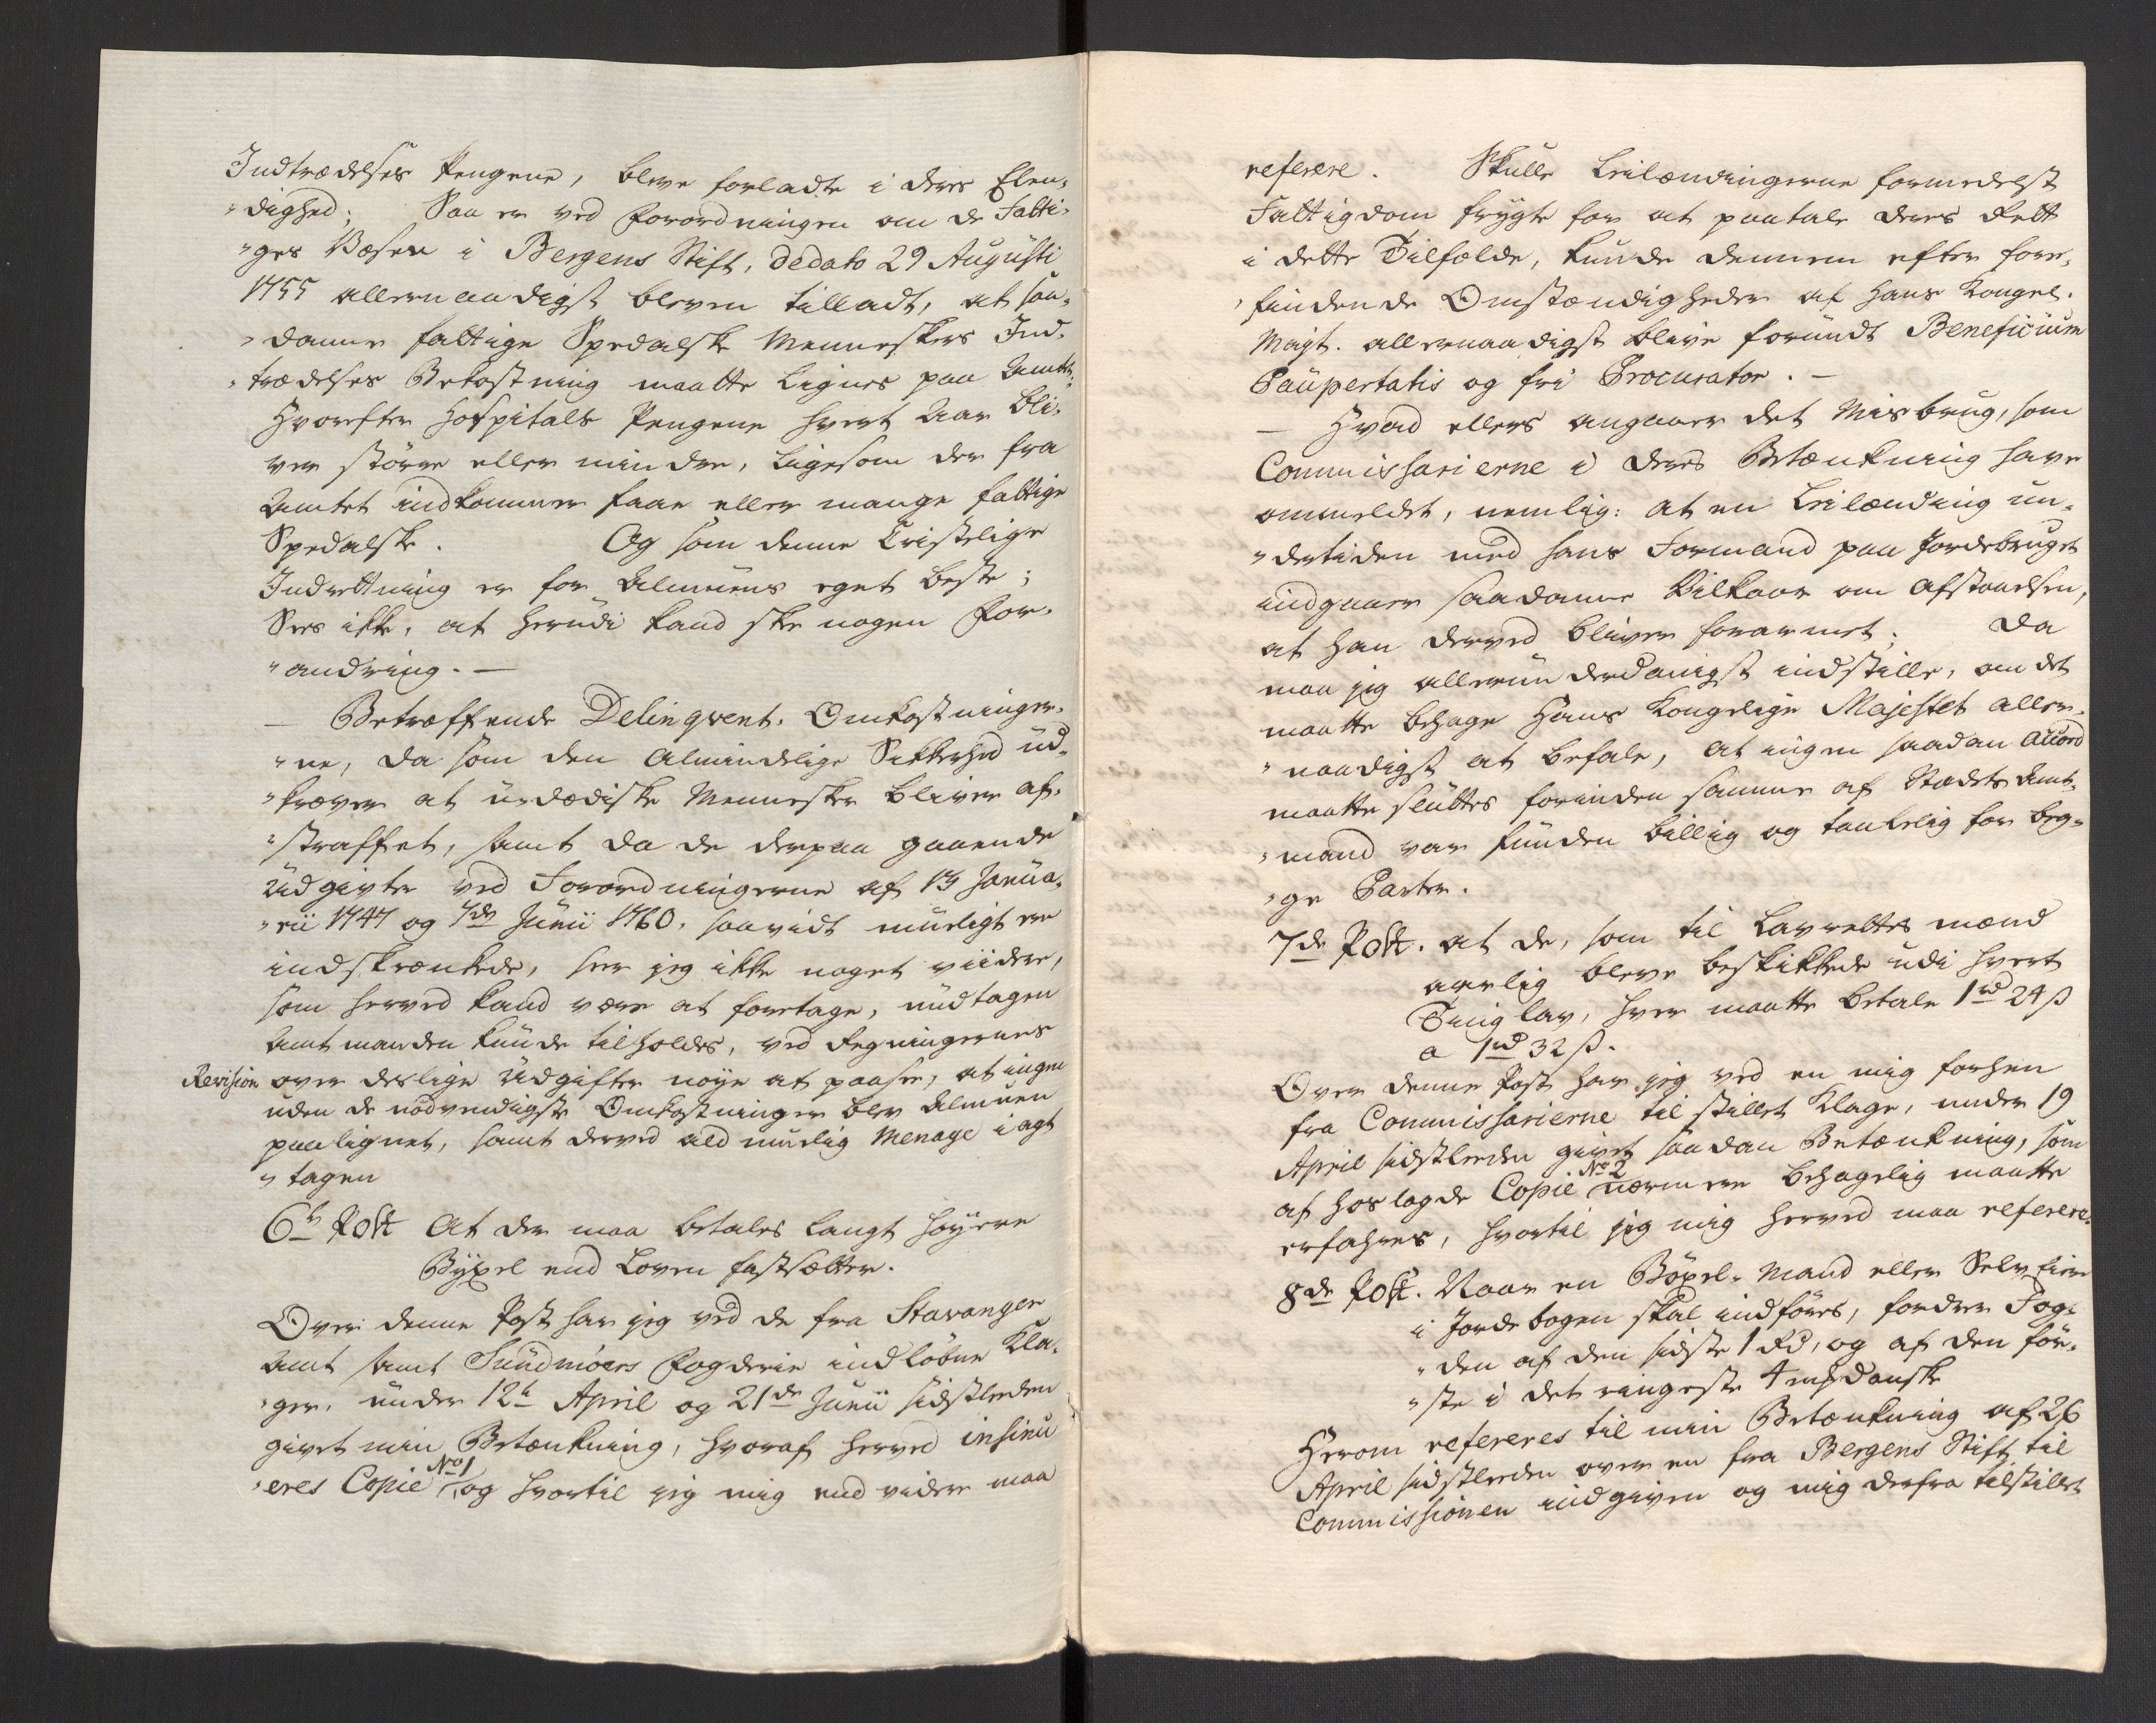 Indtrædelses Pengene, bleve forladte i deres Elen-
"dighed; Saa er ved Forordningen om de Fatti-
"ges Væsen i Bergens Stift, de dato 29 Augusti
1755 allernaadigst bleven tilladt, at saa-
"danne fattige Spedalske Menneskers Ind-
"trædelses Bekostning maatte lignes paa Amtet;
Hvorefter Hospitals Pengene hvert Aar bli-
ver større eller mindre, ligesom der fra
Amtet indkommer faae eller mange fattige
Spedalske. Og som denne Cristelige
Indrettning er for Almuens eget beste;
Sees ikke, at herudi kand ske nogen For-
"andring. —
— Betræffende Delinqvent-Omkostninger-
"ne, da som den Almindelige Sikkerhed ud-
"kræver at udædiske Mennesker bliver af-
"straffet, samt da de derpaa gaaende
Udgivter ved Forordningerne af 13 Janua-
"rii 1747 og 7de Junii 1760, saavidt mueligt ere
indskrænkede, seer jeg ikke noget viidere,
som herved kand være at foretage, undtagen
Amtmanden kunde tilholdes, ved Regningernes
Revision over deslige Udgifter nøye at paasee, at ingen
uden de nødvendigste Omkostninger blev Almuen
paalignet, samt derved ald muelig Menage iagt
"tagen
6te Post At der maa betales langt høyere
Bÿxel end Loven fastsætter.
Over denne Post har jeg ved de fra Stavanger
Amt samt Sundmøers Fogderie indløbne Kla-
"ger, under 12te April og 21de Junii sidstleden
givet min Betænkning, hvoraf herved insinu
"eres Copie No 1 og hvortil jeg mig end videre maa
referere. Skulle Leilændingerne formedelst
Fattigdom frygte for at paatale deres Rett
i dette Tilfælde, kunde dennem efter fore-
"findende Omstændigheder af Hans Kongel.
Mayt. allernaadigst blive forundt Beneficium
Paupertatis og fri Procurator. —
— Hvad ellers angaaer det Misbrug, som
Commissarierne i deres Betænkning have
ommeldet, nemlig: at en Leilænding un-
"dertiden med hans Formand paa Jordebruget
indgaaer saadanne Vilkaar om Afstaaelsen,
at han derved bliver forarmet; Da
maa jeg allerunderdanigst indstille, om det
maatte behage Hans Kongelige Majestet aller-
"naadigst at befale, at ingen saadan Accord
maatte sluttes forinden samme af Stædets Amt-
"mand var funden billig og taalelig for beg-
"ge Parter.
7de Post. at de, som til Lavrettes mænd
aarlig bleve beskikkede udi hvert
Tinglav, hver maatte betale 1 rd 24 s
a 1 rd 32 s.
Over denne Post har jeg ved en mig forhen
fra Commissarierne tilstillet Klage, under 19
April sidstleden givet saadan Betænkning, som
af hoslagde Copie No 2 nærmere behagelig maatte
erfahres, hvortil jeg mig herved maa referere.
8de Post. Naar en Bÿxel-Mand eller Selv Eier
i Jordebogen skal indføres, fordrer Fog-
"den af den sidste 1 Rd, og af den før-
"ste i det ringeste 4 mk danske
Herom refereres til min Betænkning af 26
April sidstleden over en fra Bergens Stift til
Commissionen indgiven og mig derfra tilstillet